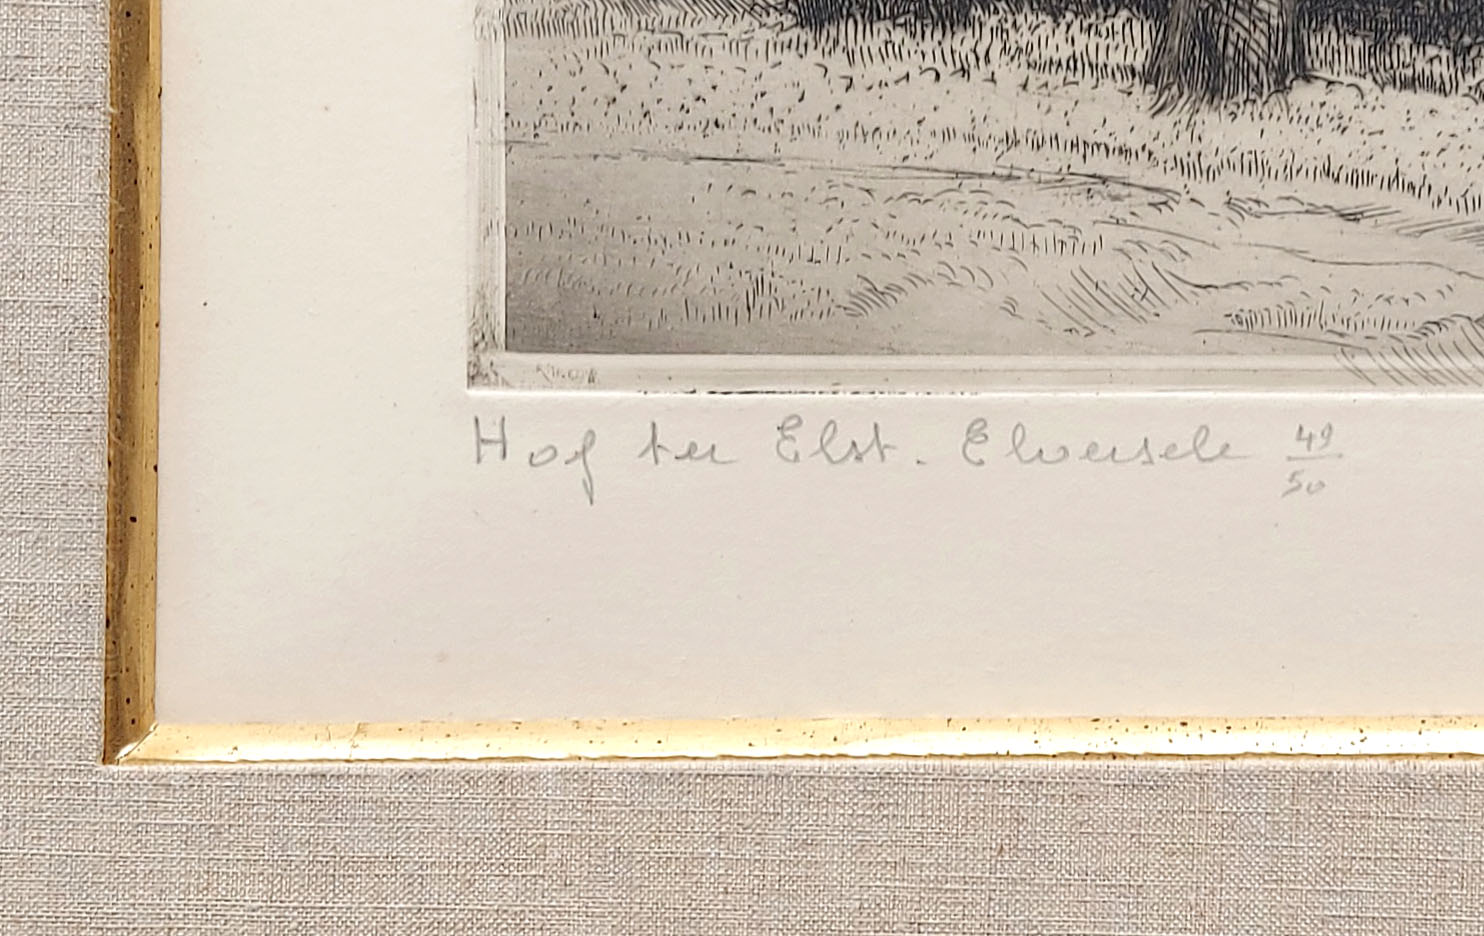 Hof ter Elst. Elversele 49/50